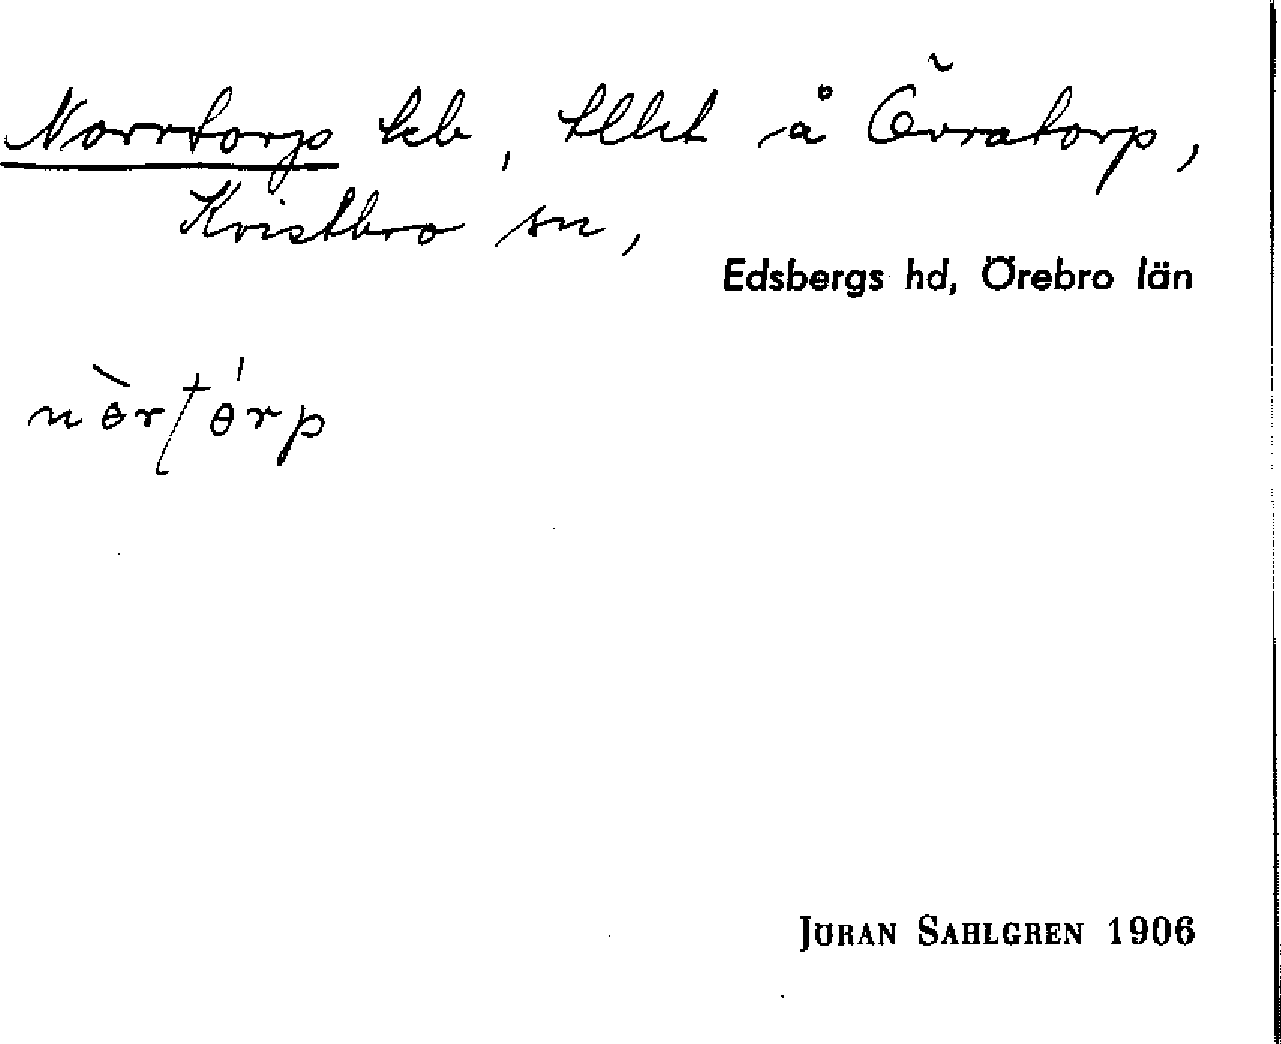 Norrtorp lcb, tllht å Övratorp,
Kvistbro sn,
Edsbergs hd, Örebro län
nὸrtɵ́rp
JÖRAN SAHLGREN 1906